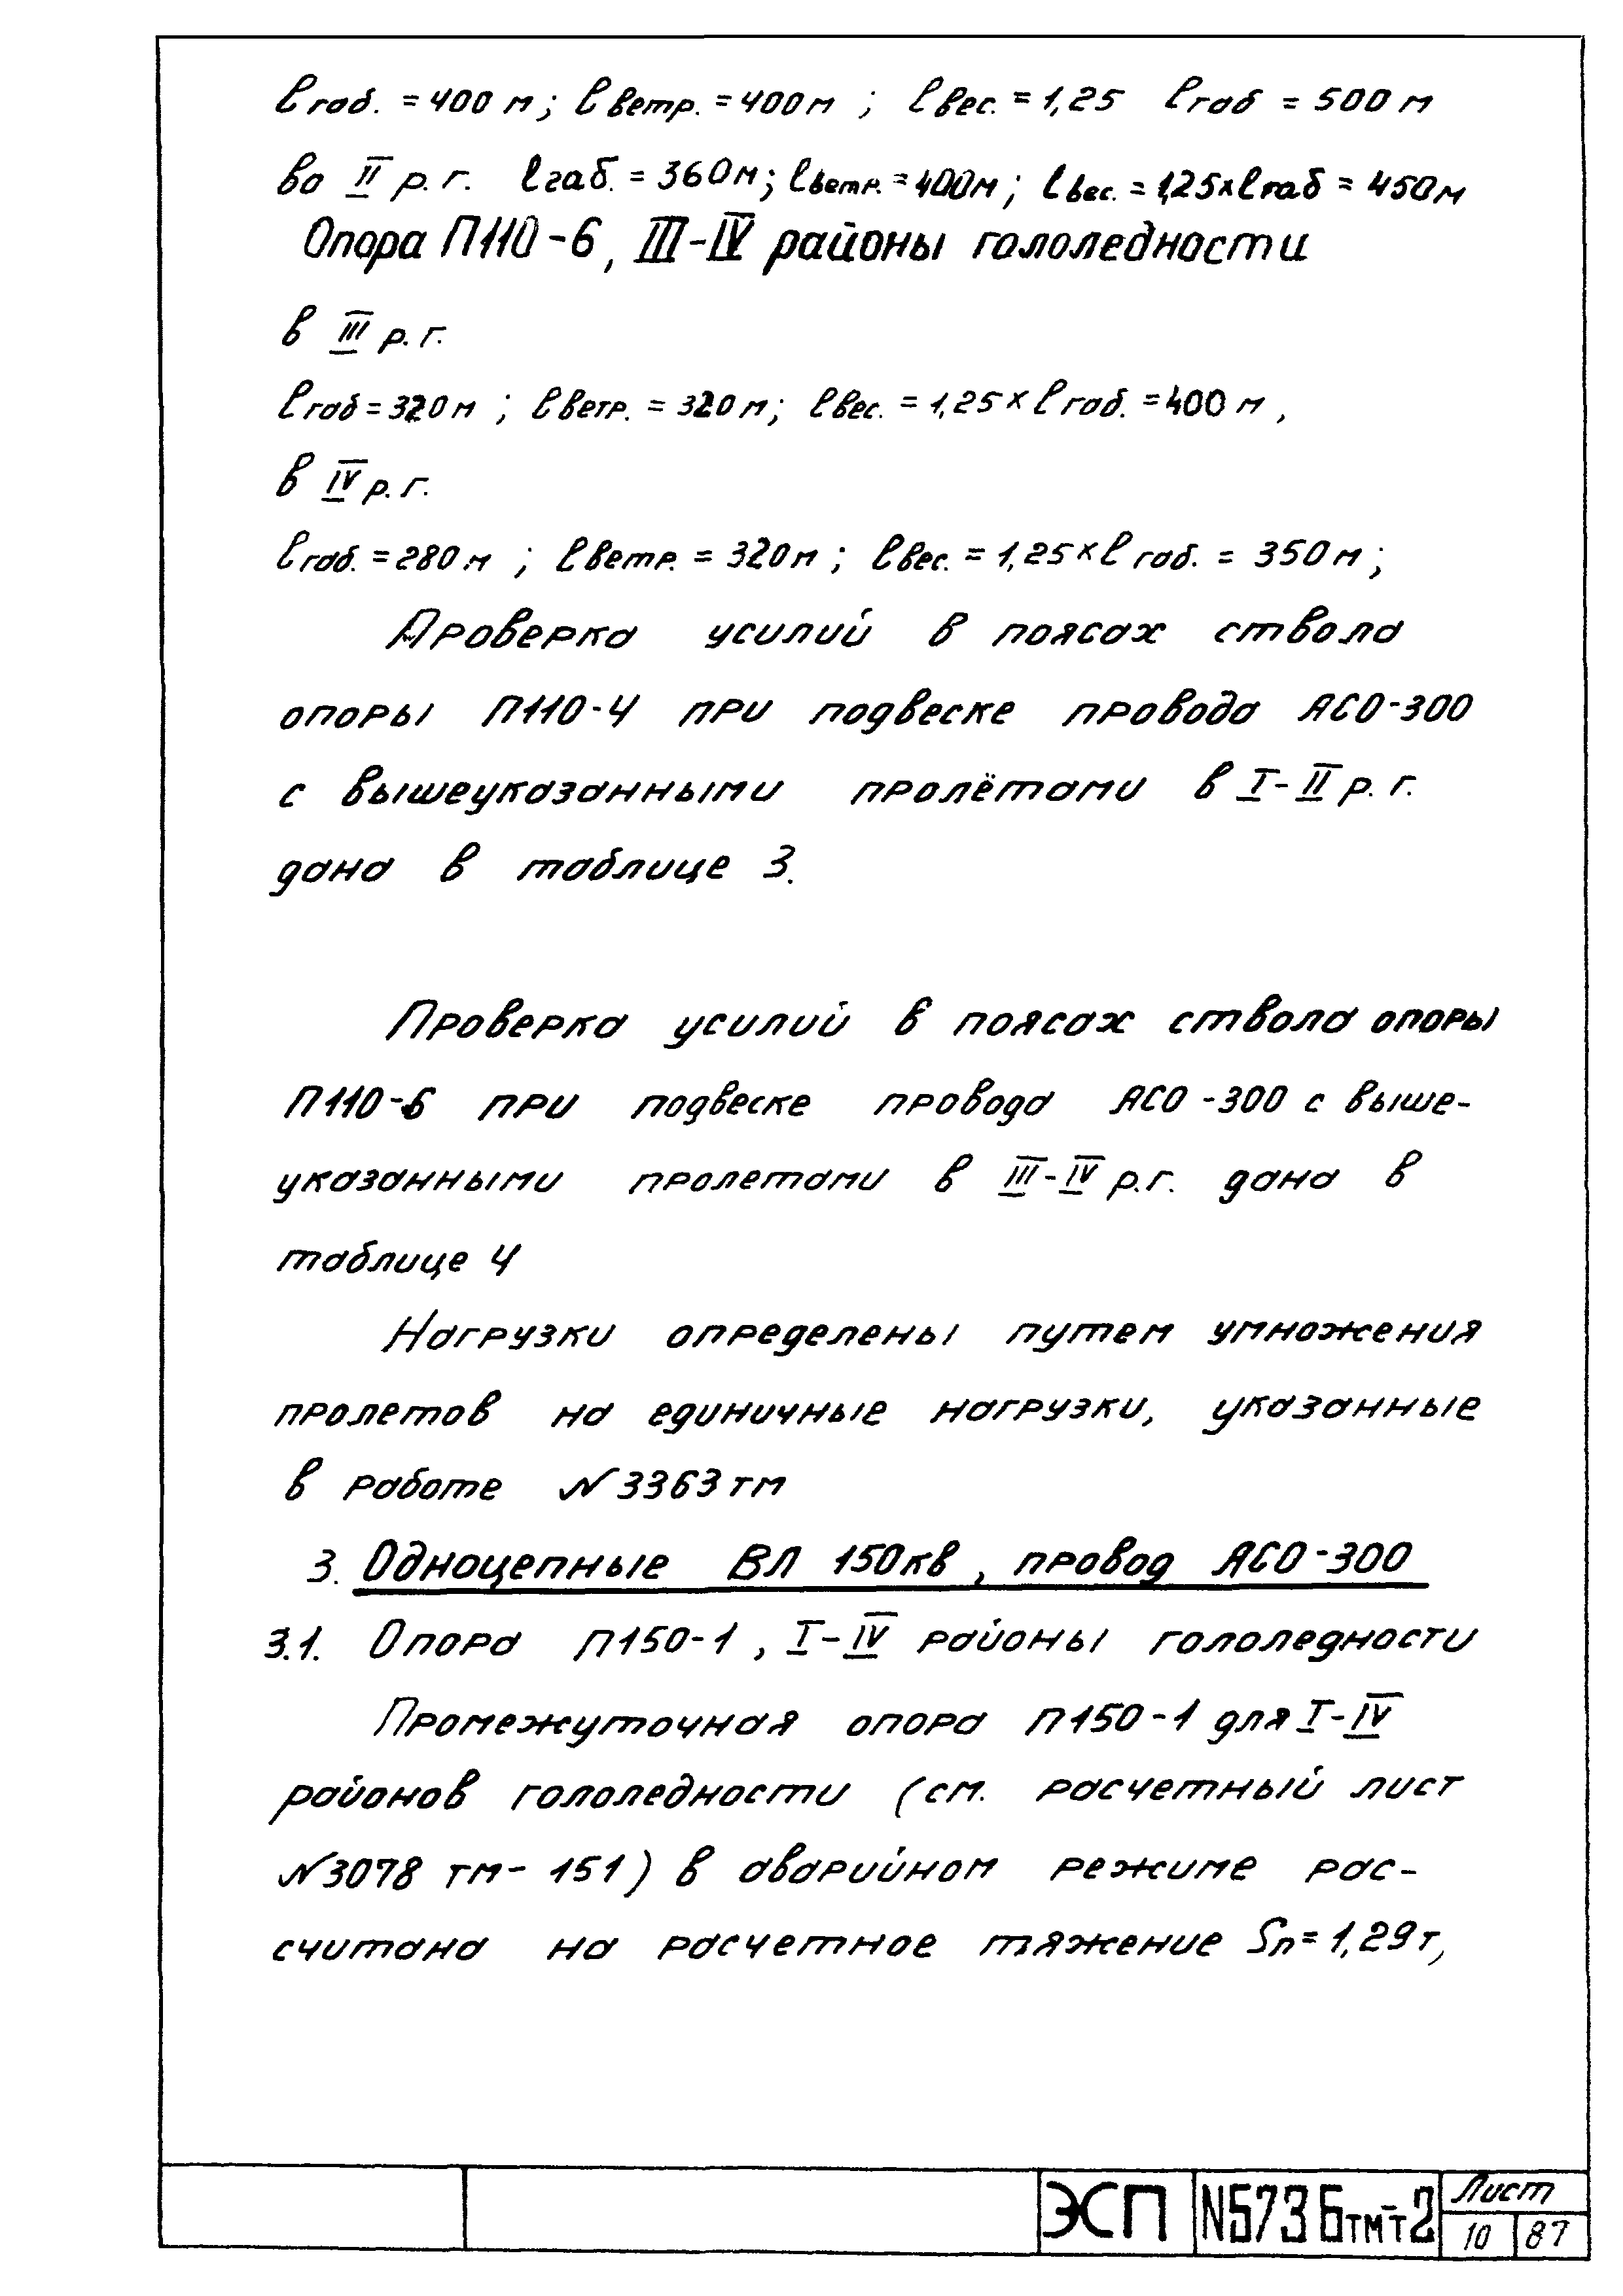 ℓгаб. = 400 м; ℓветр. = 400 м ; ℓвес. = 1,25 ℓгаб = 500 м
во II р. г. ℓгаб. = 360 м; ℓветр. = 400 м; ℓвес. = 1,25×ℓгаб = 450 м
Опора П110-6, III-IV районы гололедности
в III р. г.
ℓгаб = 320 м ; ℓветр. = 320 м; ℓвес. = 1,25 × ℓгаб. = 400 м,
в IV р. г.
ℓгаб. = 280 м ; ℓветр. = 320 м ; ℓвес. = 1,25 × ℓгаб. = 350 м ;
Проверка усилий в поясах ствола
опоры П110-4 при подвеске провода АСО-300
с вышеуказанными пролётами в I-II р. г.
дана в таблице 3.
Проверка усилий в поясах ствола опоры
П110-6 при подвеске провода АСО-300 с выше-
указанными пролетами в III-IV р.г. дана в
таблице 4
Нагрузки определены путем умножения
пролетов на единичные нагрузки, указанные
в работе №3363тм
3. Одноцепные ВЛ 150кв, провод АСО-300
3.1. Опора П150-1, I-IV районы гололедности
Промежуточная опора П150-1 для I-IV
районов гололедности (см. расчетный лист
№3078 тм-151) в аварийном режиме рас-
считана на расчетное тяжение Sп = 1,29 т,
ЭСП N5736тм-т2 Лист
10 87